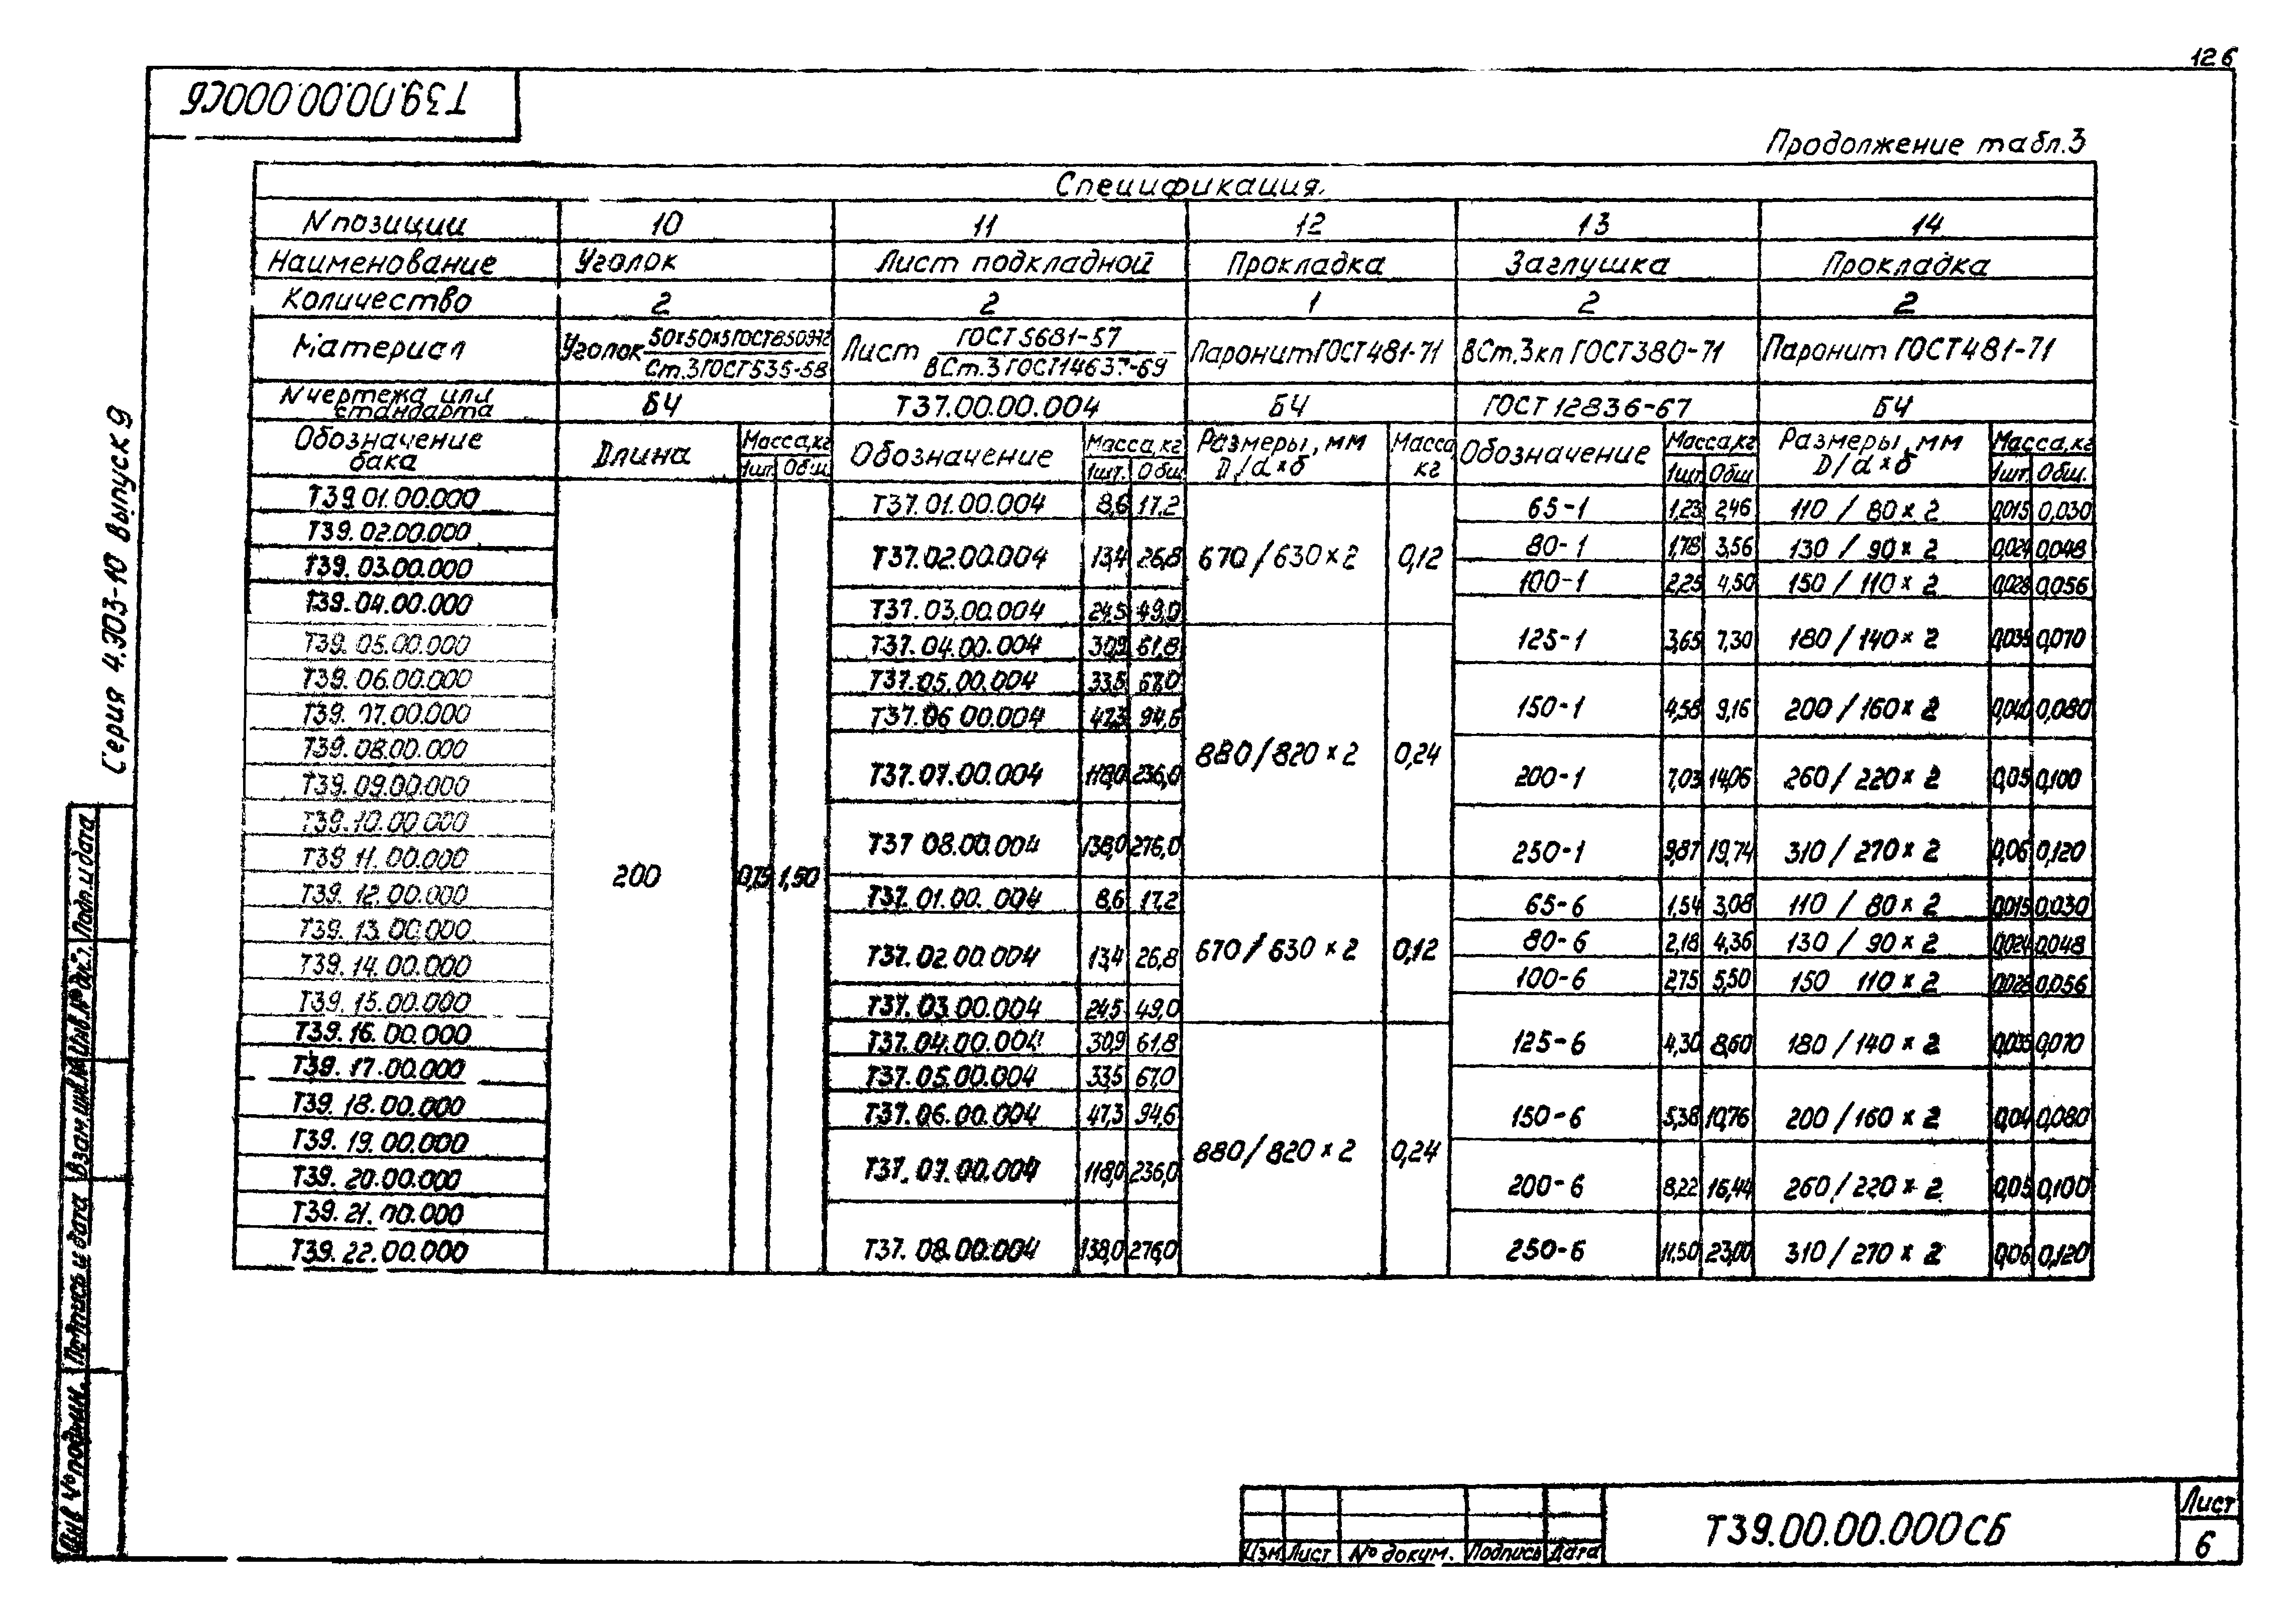 126
Т39.00.00.000СБ
Продолжение табл.3
Спецификация.
N позиции 10 11 12 13 14
Наименование Уголок Лист подкладной Прокладка Заглушка Прокладка
Количество 2 2 1 2 2
Материал Уголок 50х50х5 ГОСТ8509-72 / Ст.3 ГОСТ535-58 Лист ГОСТ5681-57 / ВСт.3 ГОСТ14637-69 Паронит ГОСТ481-71 ВСт.3кп ГОСТ380-71 Паронит ГОСТ481-71
N чертежа или стандарта БЧ Т37.00.00.004 БЧ ГОСТ 12836-67 БЧ
Обозначение бака Длина Масса,кг Обозначение Масса,кг Размеры,мм D/d×б Масса кг Обозначение Масса,кг Размеры,мм D/d×б Масса,кг
1шт. Общ. 1шт. Общ. 1шт. Общ. 1шт. Общ.
Т39.01.00.000
Т39.02.00.000
Т39.03.00.000
Т39.04.00.000
Т39.05.00.000
Т39.06.00.000
Т39.07.00.000
Т39.08.00.000
Т39.09.00.000
Т39.10.00.000
Т39.11.00.000
Т39.12.00.000
Т39.13.00.000
Т39.14.00.000
Т39.15.00.000
Т39.16.00.000
Т39.17.00.000
Т39.18.00.000
Т39.19.00.000
Т39.20.00.000
Т39.21.00.000
Т39.22.00.000
200 0,75 1,50
Т37.01.00.004 8,6 17,2
Т37.02.00.004 13,4 26,8
Т37.03.00.004 24,5 49,0
Т37.04.00.004 30,9 61,8
Т37.05.00.004 33,5 67,0
Т37.06.00.004 47,3 94,6
Т37.07.00.004 118,0 236,0
Т37.08.00.004 138,0 276,0
Т37.01.00.004 8,6 17,2
Т37.02.00.004 13,4 26,8
Т37.03.00.004 24,5 49,0
Т37.04.00.004 30,9 61,8
Т37.05.00.004 33,5 67,0
Т37.06.00.004 47,3 94,6
Т37.07.00.004 118,0 236,0
Т37.08.00.004 138,0 276,0
670/630×2 0,12
880/820×2 0,24
670/630×2 0,12
880/820×2 0,24
65-1 1,23 2,46 110/80×2 0,015 0,030
80-1 1,78 3,56 130/90×2 0,024 0,048
100-1 2,25 4,50 150/110×2 0,028 0,056
125-1 3,65 7,30 180/140×2 0,035 0,070
150-1 4,58 9,16 200/160×2 0,040 0,080
200-1 7,03 14,06 260/220×2 0,05 0,100
250-1 9,87 19,74 310/270×2 0,06 0,120
65-6 1,54 3,08 110/80×2 0,015 0,030
80-6 2,18 4,36 130/90×2 0,024 0,048
100-6 2,75 5,50 150 110×2 0,028 0,056
125-6 4,30 8,60 180/140×2 0,035 0,070
150-6 5,38 10,76 200/160×2 0,04 0,080
200-6 8,22 16,44 260/220×2 0,05 0,100
250-6 11,50 23,00 310/270×2 0,06 0,120
Серия 4.903-10 Выпуск 9
Инв № подлин. Подпись и дата Взам.инв.№ Инв.№ дубл. Подп.и дата
Изм Лист № докум. Подпись Дата
Т39.00.00.000СБ
Лист
6